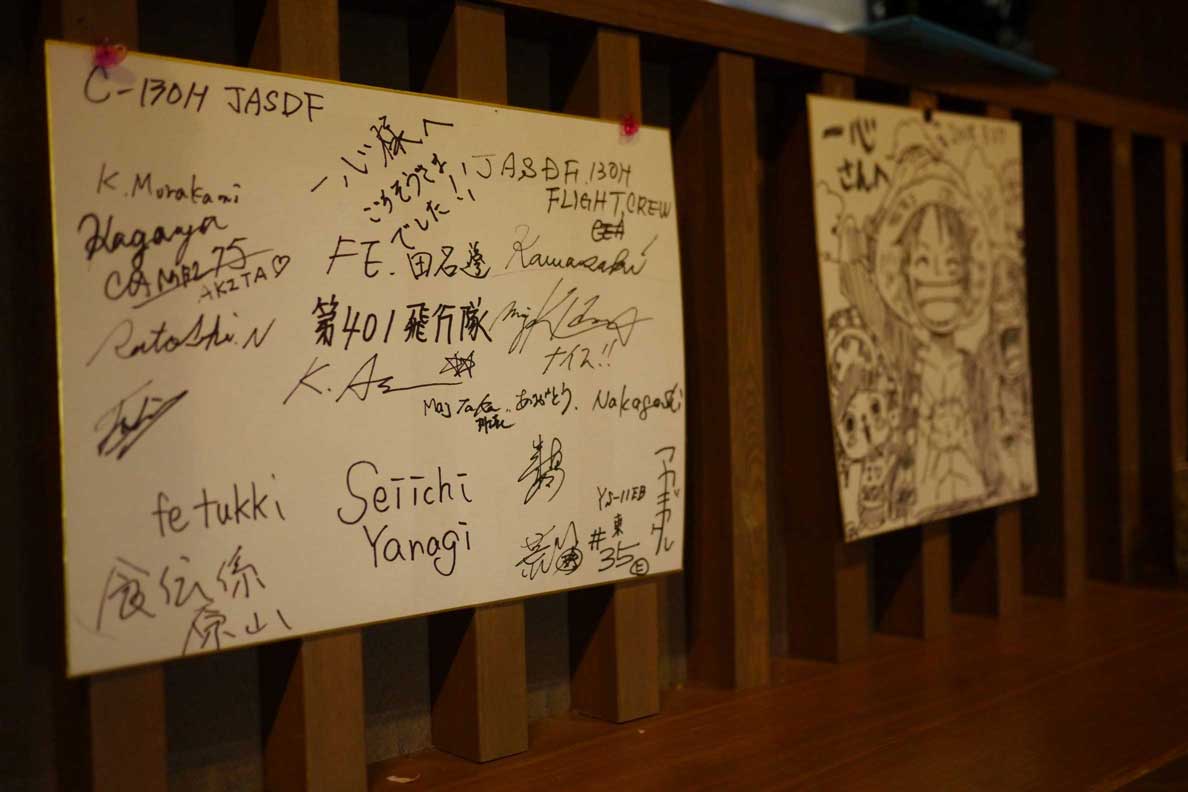 C-130H JASDF
一心様へ
ごちそうさま
でした!!
JASDF.130H
FLIGHT CREW
K. Murakami
Kagaya
CAMEL 75
AKITA♡
FE. 田名邊
Kawasaki
Satoshi.N
第401飛行隊
ナイス!!
K. A
Maj Taka
ありがとう.
Nakagoshi
fetukki
Seiichi
Yanagi
YS-11EB
#東
35
食伝係
原山
一心
さんへ